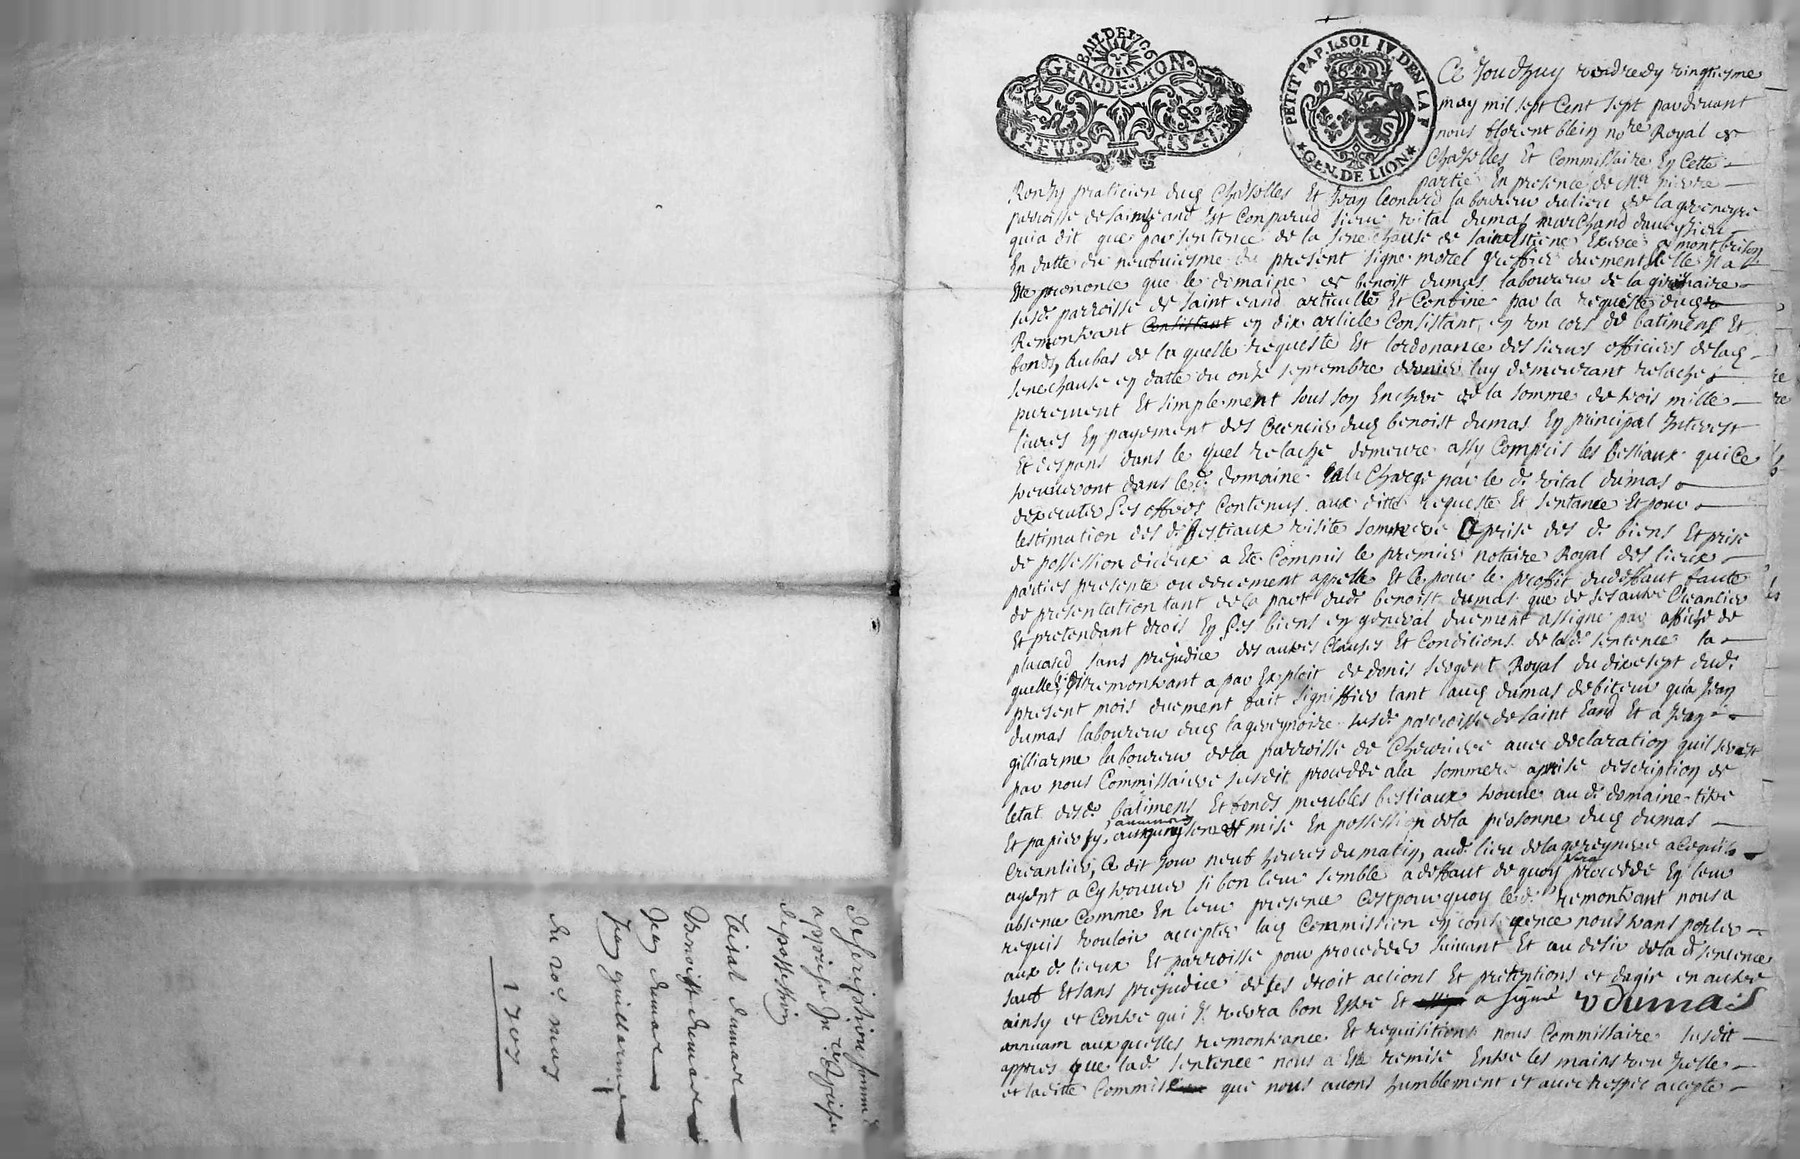 BAIL DE 1706
GEN · DE · LION
FEVI · IS 4 F
PETIT PAP. 1. SOL IV. DEN LA F
GEN. DE LION
Ce Jourdhuy vendredy vingtiesme
may mil sept Cent sept pardevant
nous florent blein nore Royal de
Chaselles Et Commissaire En Cette
partie En presence de Mre pierre
Ronzy praticien dud Chaselles Et Jean Leonard laboureur du lieu de lagreneyre
parroisse de saint Eand Est Conparud sieur vital dumas marchand
qui a dit que par sentence de la senechausé de saint Estiene Exercé a montbrison
En datte du neufuiesme du present signé morel greffier duement Il a
Ete prononcé que le domaine de benoist dumas laboureur de la
susde parroisse de saint eand articullé Et Confiné par la requeste dud
Remontrant Consistant en dix article Consistant en un cors de batiment Et
fonds, Aubas de la quelle requeste Est lordonance des sieurs officiers de lad
senechausé en datte du onze septembre dernier luy demeurant relaché
purement Et simplement sous son Enchere de la somme de trois mille
livres En payement des Creancier dud benoist dumas En principal Interest
Et despans dans le quel relaché demeure assy Compris les bestiaux qui Ce
trouveront dans le d. domaine Ala Charge par le d. vital dumas
dexecuter les offres Contenus aux ditte requeste Et sentance Et pour
lestimation des d. bestiaux visite sommere aprise des d. biens Et prise
de possession diceux a Ete Commis le premier notaire Royal des lieux
parties presente ou duement appelle Et Ce pour le proffit dudeffaut faute
de presentation tant de la part dud. benoist dumas que de ses autre Creantier
Et pretendant drois En ses biens en general duement assigné par affiche de
placard sans prejudice des autres Clauses Et Conditions de la de sentence la
quelle remontrant a par Exploit de denis sergent Royal du dixesept dud.
present mois duement fait signiffier tant aud dumas debiteur qua Jean
dumas laboureur dud lagreneyre susde parroisse de saint Eand Et a Jean
gilliarme laboureur de la parroisse de Chevrieres avec declaration quil seroit
par nous Commissaire susdit procedde ala sommere aprise description de
letat desd. batimens Et fonds meubles bestiaux trouvé au d. domaine titre
Et papiers mise En possession de la personne dud dumas
Creantier, Ce dit Jour neuf heures du matin, aud. lieu de la greneyre aCequils
ayent a Cy trouver si bon leur semble a deffaut de quoy sera procedde En leur
absence Comme En leur presence Cest pourquoy led. remontrant nous a
requis vouloir accepter lad Commission en consequence nous trans porter
aux d. lieux Et parroisse pour procedder suivant Et au desir de la d sentence
sauf Et sans prejudice de ses droit actions Et pretentions et dagir en autre
ainsy et Contre qui Il verra bon Estre Et a signé vdumas
aux quelles remontrance Et requisitions nous Commissaire susdit
appres que lad. sentence nous a Ete remise Entre les mains veu Icelle
et laditte Commis que nous avons humblement et avec respec accepté
description somme
apprise In & prise
de possession
Vital dumas
Benoist dumas
Jean dumas
Jean guillarme
du 20e may
1707